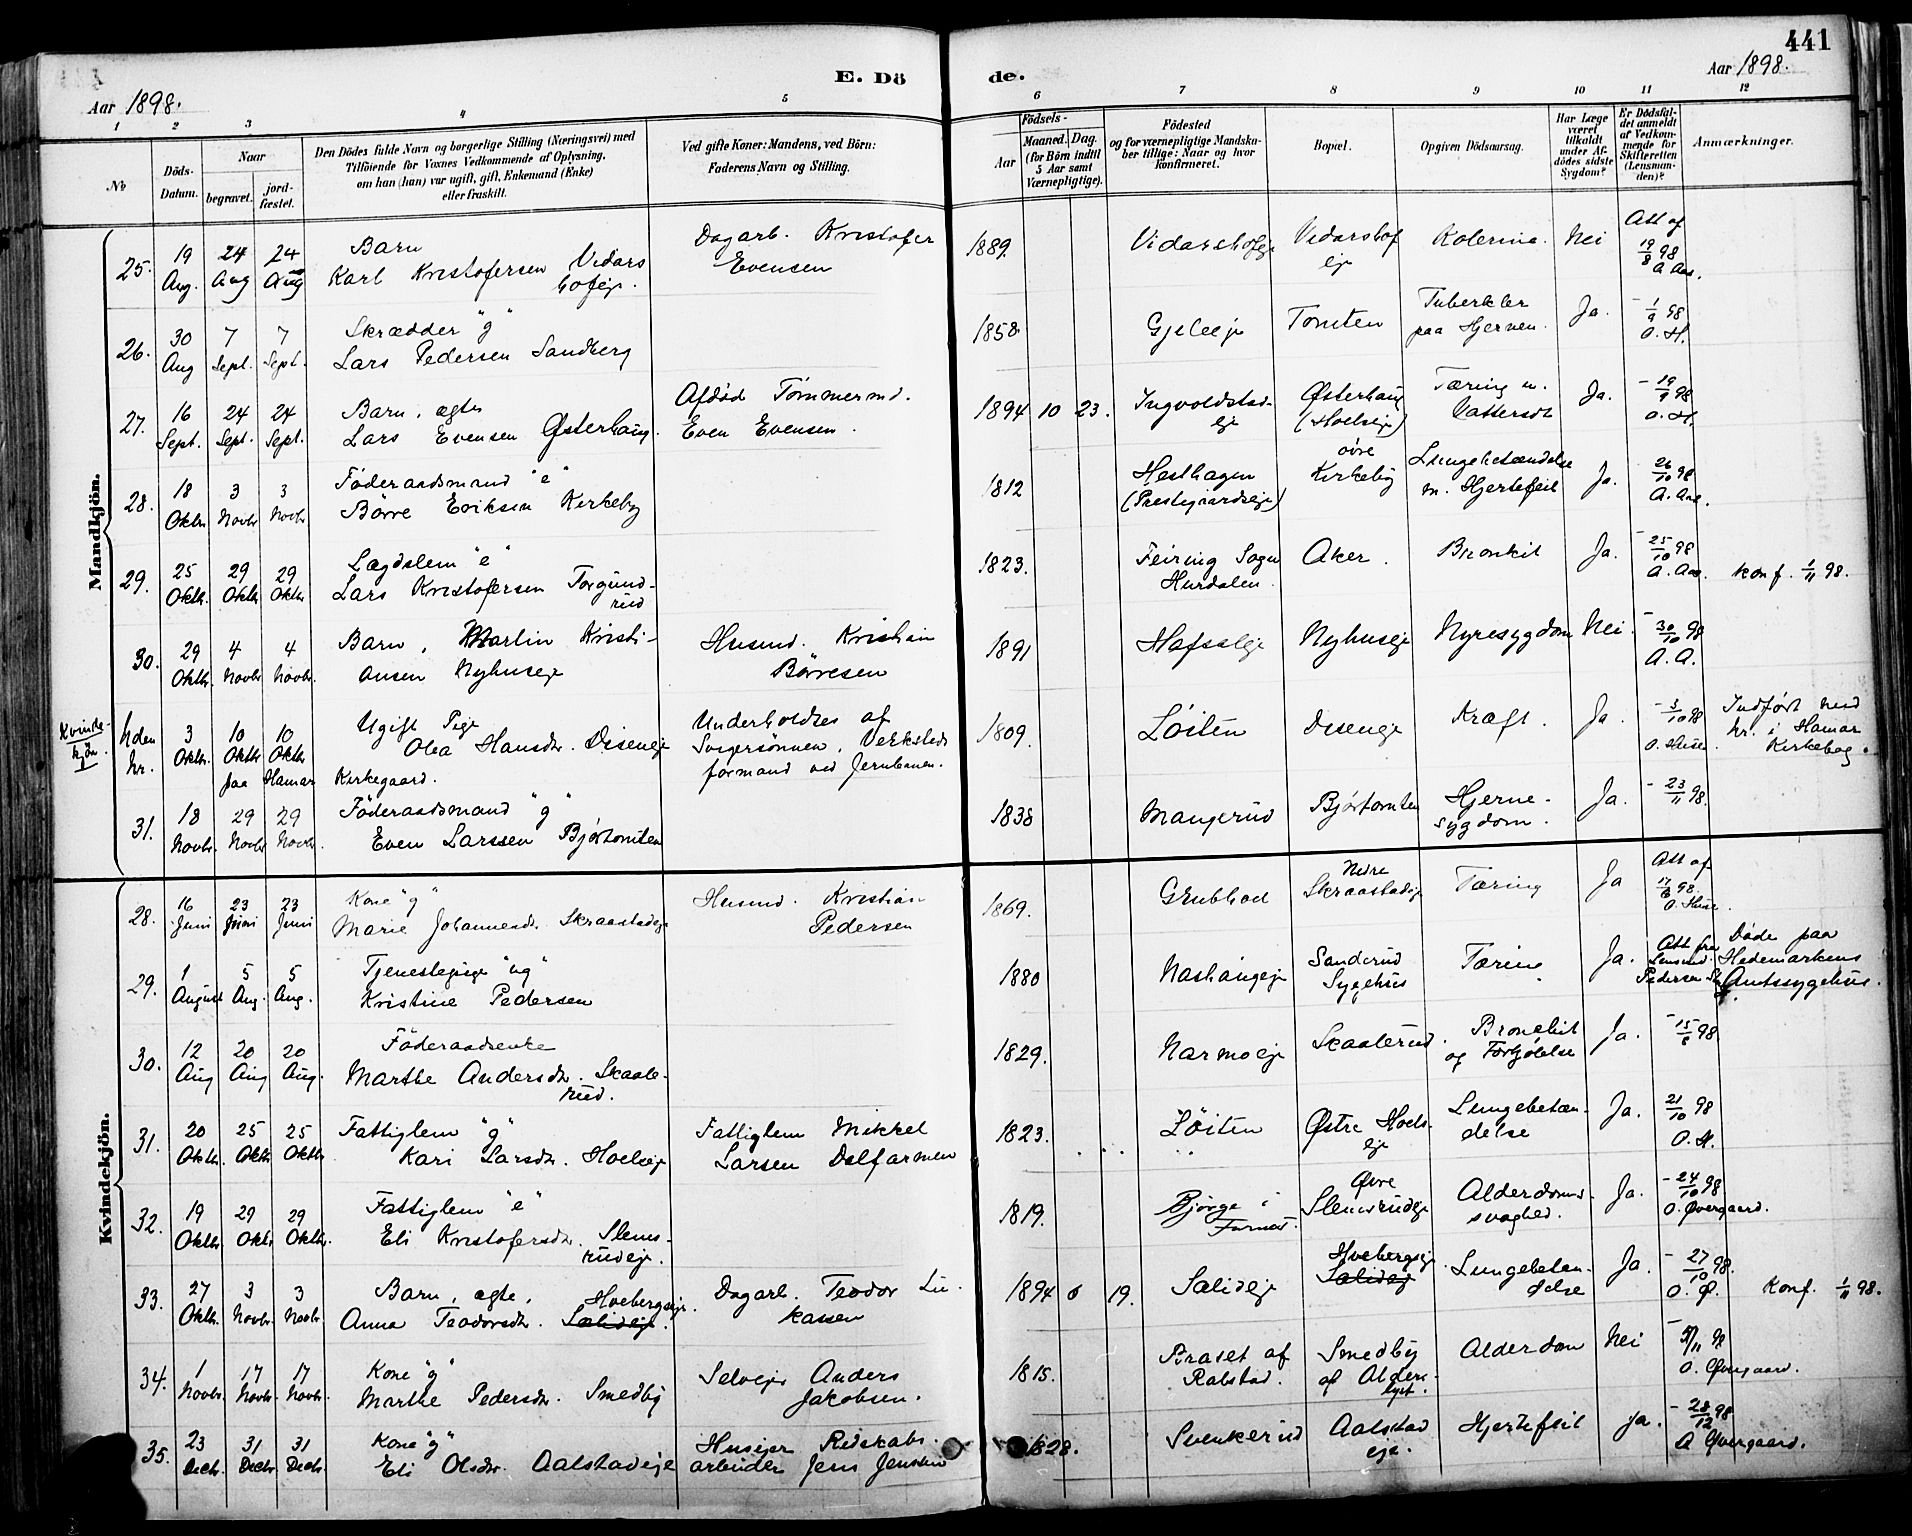 441
E. Dö de.
Aar 1898.
Aar 1898.
1 2 3 4 5 6 7 8 9 10 11 12
No
Döds-Datum.
Naar
begravet.
jord-fæstet.
Den Dödes fulde Navn og borgerlige Stilling (Næringsvei) med
Tilföiende for Voxnes Vedkommende af Oplysning,
om han (hun) var ugift, gift, Enkemand (Enke)
eller fraskilt.
Ved gifte Koner: Mandens, ved Börn:
Faderens Navn og Stilling.
Födsels-
Aar
Maaned. Dag.
(for Börn indtil
5 Aar samt
Værnepligtige).
Födested
og for værnepligtige Mandska-
ber tillige: Naar og hvor
konfirmeret.
Bopæl.
Opgiven Dödsaarsag.
Har Læge
været
tilkaldt
under Af-
dödes sidste
Sygdom?
Er Dödsfal-
det anmeldt
af Vedkom-
mende for
Skifteretten
(Lensman-
den)?
Anmærkninger.
Mandkjön.
25. 19 Aug. 24 Aug 24 Aug Barn
Karl Kristofersen Vidars
hofeje.
Dagarb. Kristofer
Evensen
1889. Vidarshofeje Vidarshof
eje
Kolerine. Nei Att af
19/8 98
A Aas.
26. 30 Aug 7 Sept. 7 Sept. Skrædder "g"
Lars Pedersen Sandberg
1858. Gjeleeje Tomten Tuberkler
paa Hjernen. Ja. - 1/9 98
O. H.
27. 16 Sept. 24 Sept. 24 Sept. Barn, ægte
Lars Evensen Østerhaug.
Afdød Tømmermd.
Even Evensen.
1894 10 23. Ingvoldstad-
eje
Østerhaug
(Hoelseje)
Tæring m.
Vattersot
Ja. - 19/9 98
O. H.
28. 18 Oktbr. 3 Novbr 3 Novbr Föderaadsmand "e"
Börre Eriksen Kirkeby
1812 Hesthagen
(Prestgaardseje)
øvre
Kirkeby
Lungebetændelse
m. Hjertefeil
Ja. 26/10 98
A. Aas.
29. 25 Oktbr. 29 Oktbr 29 Oktbr Lægdslem "e"
Lars Kristofersen Torgund-
rud
1823. Feiring Sogn
Hurdalen.
Aker. Bronkit Ja. - 25/10 98
A. Aas. Konf. 1/11 98.
30. 29 Oktbr. 4 Novbr 4 Novbr. Barn, Martin Kristi-
ansen Nyhuseje
Husmd. Kristian
Börresen
1891 Hafsaleje Nyhuseje Nyresygdom Nei. - 30/10 98
A. A.
Kvinde-
kjön
Uden
Nr. 3 Oktbr. 10 Oktbr 10 Oktbr Ugift Pige
Olea Hansdr. Diseneje
paa Hamar Kirkegaard.
Underholdtes af
Svigersönnen, Verksteds
formand ved Jernbanen.
1809. Löiten Diseneje Kræft. Ja. - 3/10 98
O. Huse. Indført med
Nr. i Hamar
Kirkebog.
31. 18 Novbr. 29 Novbr 29 Novbr. Föderaadsmand "g"
Even Larssen Bjørtomten
1838 Mangerud Bjørtomten Hjerne-
sygdom. Ja. - 23/11 98.
Kvindekjön.
28. 16 Juni 23 Juni 23 Juni Kone "g"
Marie Johannesdr. Skraastadeje
Husmd. Kristian
Pedersen
1869. Grubhol Nedre
Skraastadeje Tæring Ja Att af
17/6 98.
O. Huse.
29. 1 August 5 Aug. 5 Aug. Tjenestepige "ug"
Kristine Pedersen
1880 Nashaugeje Sanderud
Sygehus
Tæring Ja. Att fra
Lensmd.
Pedersen
Døde paa
Hedemarkens
Amtssygehus.
30. 12 Aug 20 Aug 20 Aug. Föderaadsenke
Marthe Andersdr. Skaale-
rud.
1829. Narmoeje Skaalerud. Bronchit
og Forkjølelse Ja. - 15/8 98
31. 20 Oktbr. 25 Oktbr 25 Oktbr. Fattiglem "g"
Kari Larsdr. Hoelseje
Fattiglem Mikkel
Larsen Dalfarmen
1823. Löiten Østre Hoels-
eje
Lungebetæn-
delse Ja. 21/10 98
O. H.
32. 19 Oktbr 29 Oktbr. 29 Oktbr. Fattiglem "e"
Eli Kristofersdr. Slems-
rudeje.
1819. Bjørge i
Furnes.
Øvre
Slemsrudeje
Alderdoms-
svaghed. Ja. - 24/10 98
O. Øvergaard.
33. 27 Oktbr. 3 Novbr. 3 Novbr. Barn, ægte,
Anna Teodorsdr. Hvebergseje. Sælideje.
Dagarb. Teodor Lu-
kassen
1894 6 19. Sælideje Hvebergseje
Sælideje
Lungebetæn-
delse Ja. - 27/10 98.
O. Ø. Konf. 1/11 98.
34. 1 Novbr. 17 Novbr. 17 Novbr. Kone "g"
Marthe Pedersdr. Smedby
Selvejer Anders
Jakobsen.
1815. Braset af
Rabstad.
Smedby
af Alders-
lyst.
Alderdom Nei
O. Øvergaard.
35. 23 Decbr. 31 Decbr 31 Decbr. Kone "g"
Eli Olsdr. Aalstadeje
Husejer Redskabs-
arbeider Jens Jensen
1828. Svenkerud Aalstad
eje.
Hjertefeil Ja. - 28/12 98
A Øvergaard.